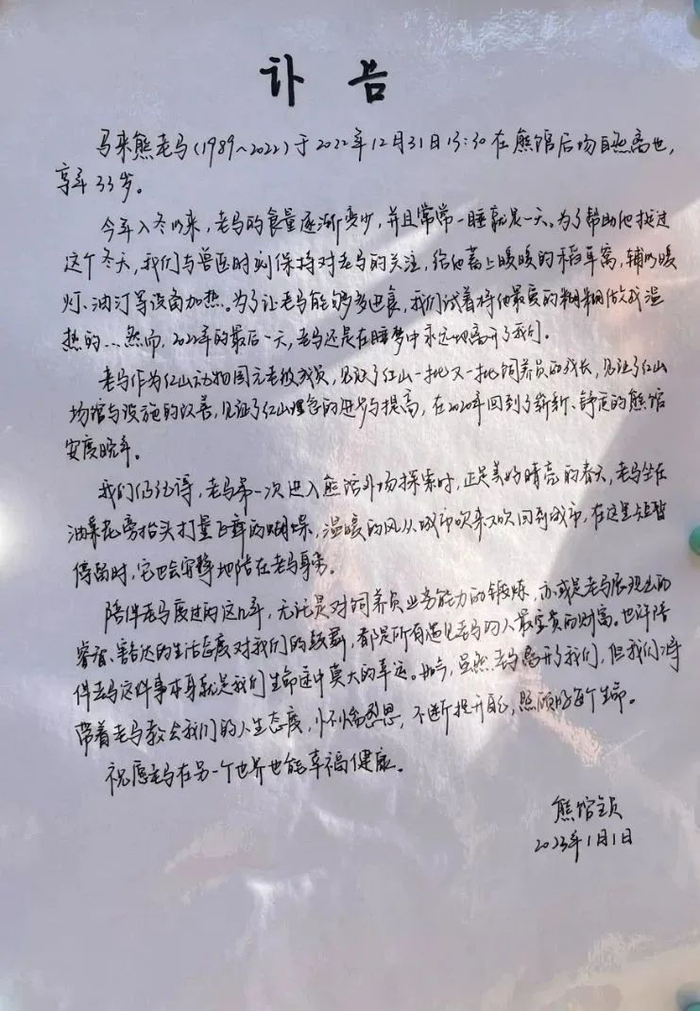 讣 告
马来熊老马(1989~2022)于2022年12月31日13:30在熊馆后场自然离世,
享年33岁。
今年入冬以来,老马的食量逐渐变少,并且常常一睡就是一天。为了帮助他挺过
这个冬天,我们与兽医时刻保持对老马的关注,给他蓄上暖暖的稻草窝,辅以暖
灯、油汀等设备加热。为了让老马能够多进食,我们试着将他最爱的糊糊做成温
热的...然而,2022年的最后一天,老马还是在睡梦中永远地离开了我们。
老马作为红山动物园元老级成员,见证了红山一批又一批饲养员的成长,见证了红山
场馆与设施的改善,见证了红山理念的进步与提高,在2020年回到了崭新、舒适的熊馆
安度晚年。
我们仍记得,老马第一次进入熊馆外场探索时,正是美好晴亮的春天,老马坐在
油菜花旁抬头打量飞舞的蝴蝶,温暖的风从城市吹来又吹回到城市,在这里短暂
停留时,它也会安静地陪在老马身旁。
陪伴老马度过的这几年,无论是对饲养员业务能力的锻炼,亦或是老马展现出的
睿智、豁达的生活态度对我们的鼓舞,都是所有遇见老马的人最宝贵的财富。也许陪
伴老马这件事本身就是我们生命途中莫大的幸运。如今,虽然老马离开了我们,但我们将
带着老马教会我们的人生态度,心怀感恩,不断提升自己,照顾好每个生命。
祝愿老马在另一个世界也能幸福健康。
熊馆全员
2023年1月1日